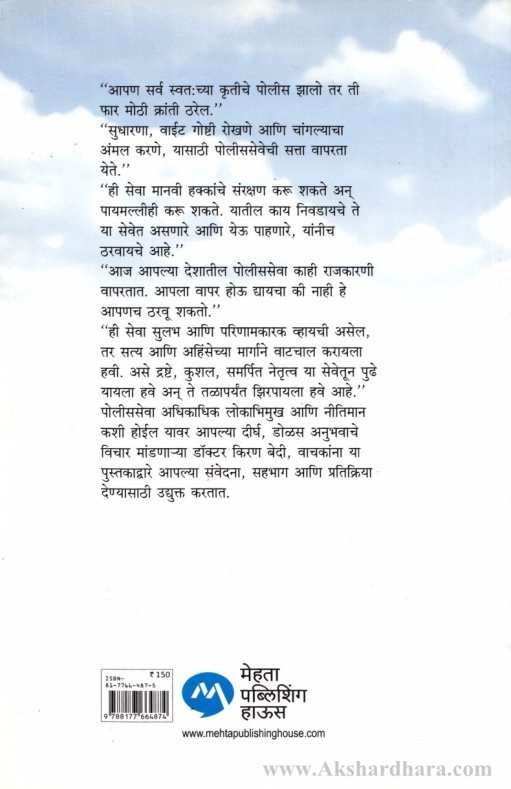 “आपण सर्व स्वत:च्या कृतीचे पोलीस झालो तर ती
फार मोठी क्रांती ठरेल.”
“सुधारणा, वाईट गोष्टी रोखणे आणि चांगल्याचा
अंमल करणे, यासाठी पोलीससेवेची सत्ता वापरता
येते.”
“ही सेवा मानवी हक्कांचे संरक्षण करू शकते अन्
पायमल्लीही करू शकते. यातील काय निवडायचे ते
या सेवेत असणारे आणि येऊ पाहणारे, यांनीच
ठरवायचे आहे.”
“आज आपल्या देशातील पोलीससेवा काही राजकारणी
वापरतात. आपला वापर होऊ द्यायचा की नाही हे
आपणच ठरवू शकतो.”
“ही सेवा सुलभ आणि परिणामकारक व्हायची असेल,
तर सत्य आणि अहिंसेच्या मार्गाने वाटचाल करायला
हवी. असे द्रष्टे, कुशल, समर्पित नेतृत्व या सेवेतून पुढे
यायला हवे अन् ते तळापर्यंत झिरपायला हवे आहे.”
पोलीससेवा अधिकाधिक लोकाभिमुख आणि नीतिमान
कशी होईल यावर आपल्या दीर्घ, डोळस अनुभवाचे
विचार मांडणाऱ्या डॉक्टर किरण बेदी, वाचकांना या
पुस्तकाद्वारे आपल्या संवेदना, सहभाग आणि प्रतिक्रिया
देण्यासाठी उद्युक्त करतात.
ISBN- ₹ 150
81-7766-487-5
9 788177 664874
मेहता
पब्लिशिंग
हाऊस
www.mehtapublishinghouse.com
www.Akshardhara.com